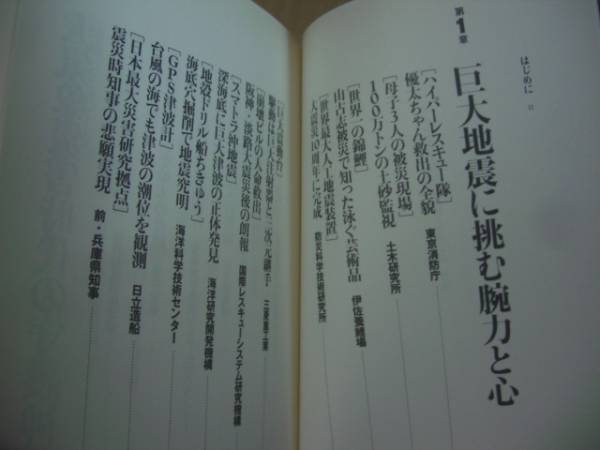 はじめに
第1章
巨大地震に挑む腕力と心
[ハイパーレスキュー隊]
優太ちゃん救出の全貌 東京消防庁
[母子3人の被災現場]
100万トンの土砂監視 土木研究所
[世界一の錦鯉]
山古志被災で知った泳ぐ芸術品 伊佐養鯉場
[世界最大人工地震装置]
大震災10周年に完成 防災科学技術研究所
[巨大震動台]
駆動は巨大注射器と三次元継手 三菱重工業
[崩壊ビルの人命救出]
阪神・淡路大震災後の朗報 国際レスキューシステム研究機構
[スマトラ沖地震]
深海底に巨大津波の正体発見 海洋研究開発機構
[地殻ドリル船ちきゅう]
海底穴掘削で地震究明 海洋科学技術センター
[GPS津波計]
台風の海でも津波の潮位を観測 日立造船
[日本最大災害研究拠点]
震災時知事の悲願実現 前・兵庫県知事